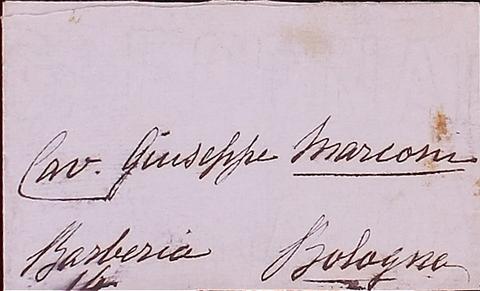 Cav. Giuseppe Marconi
Barberia Bologna
16